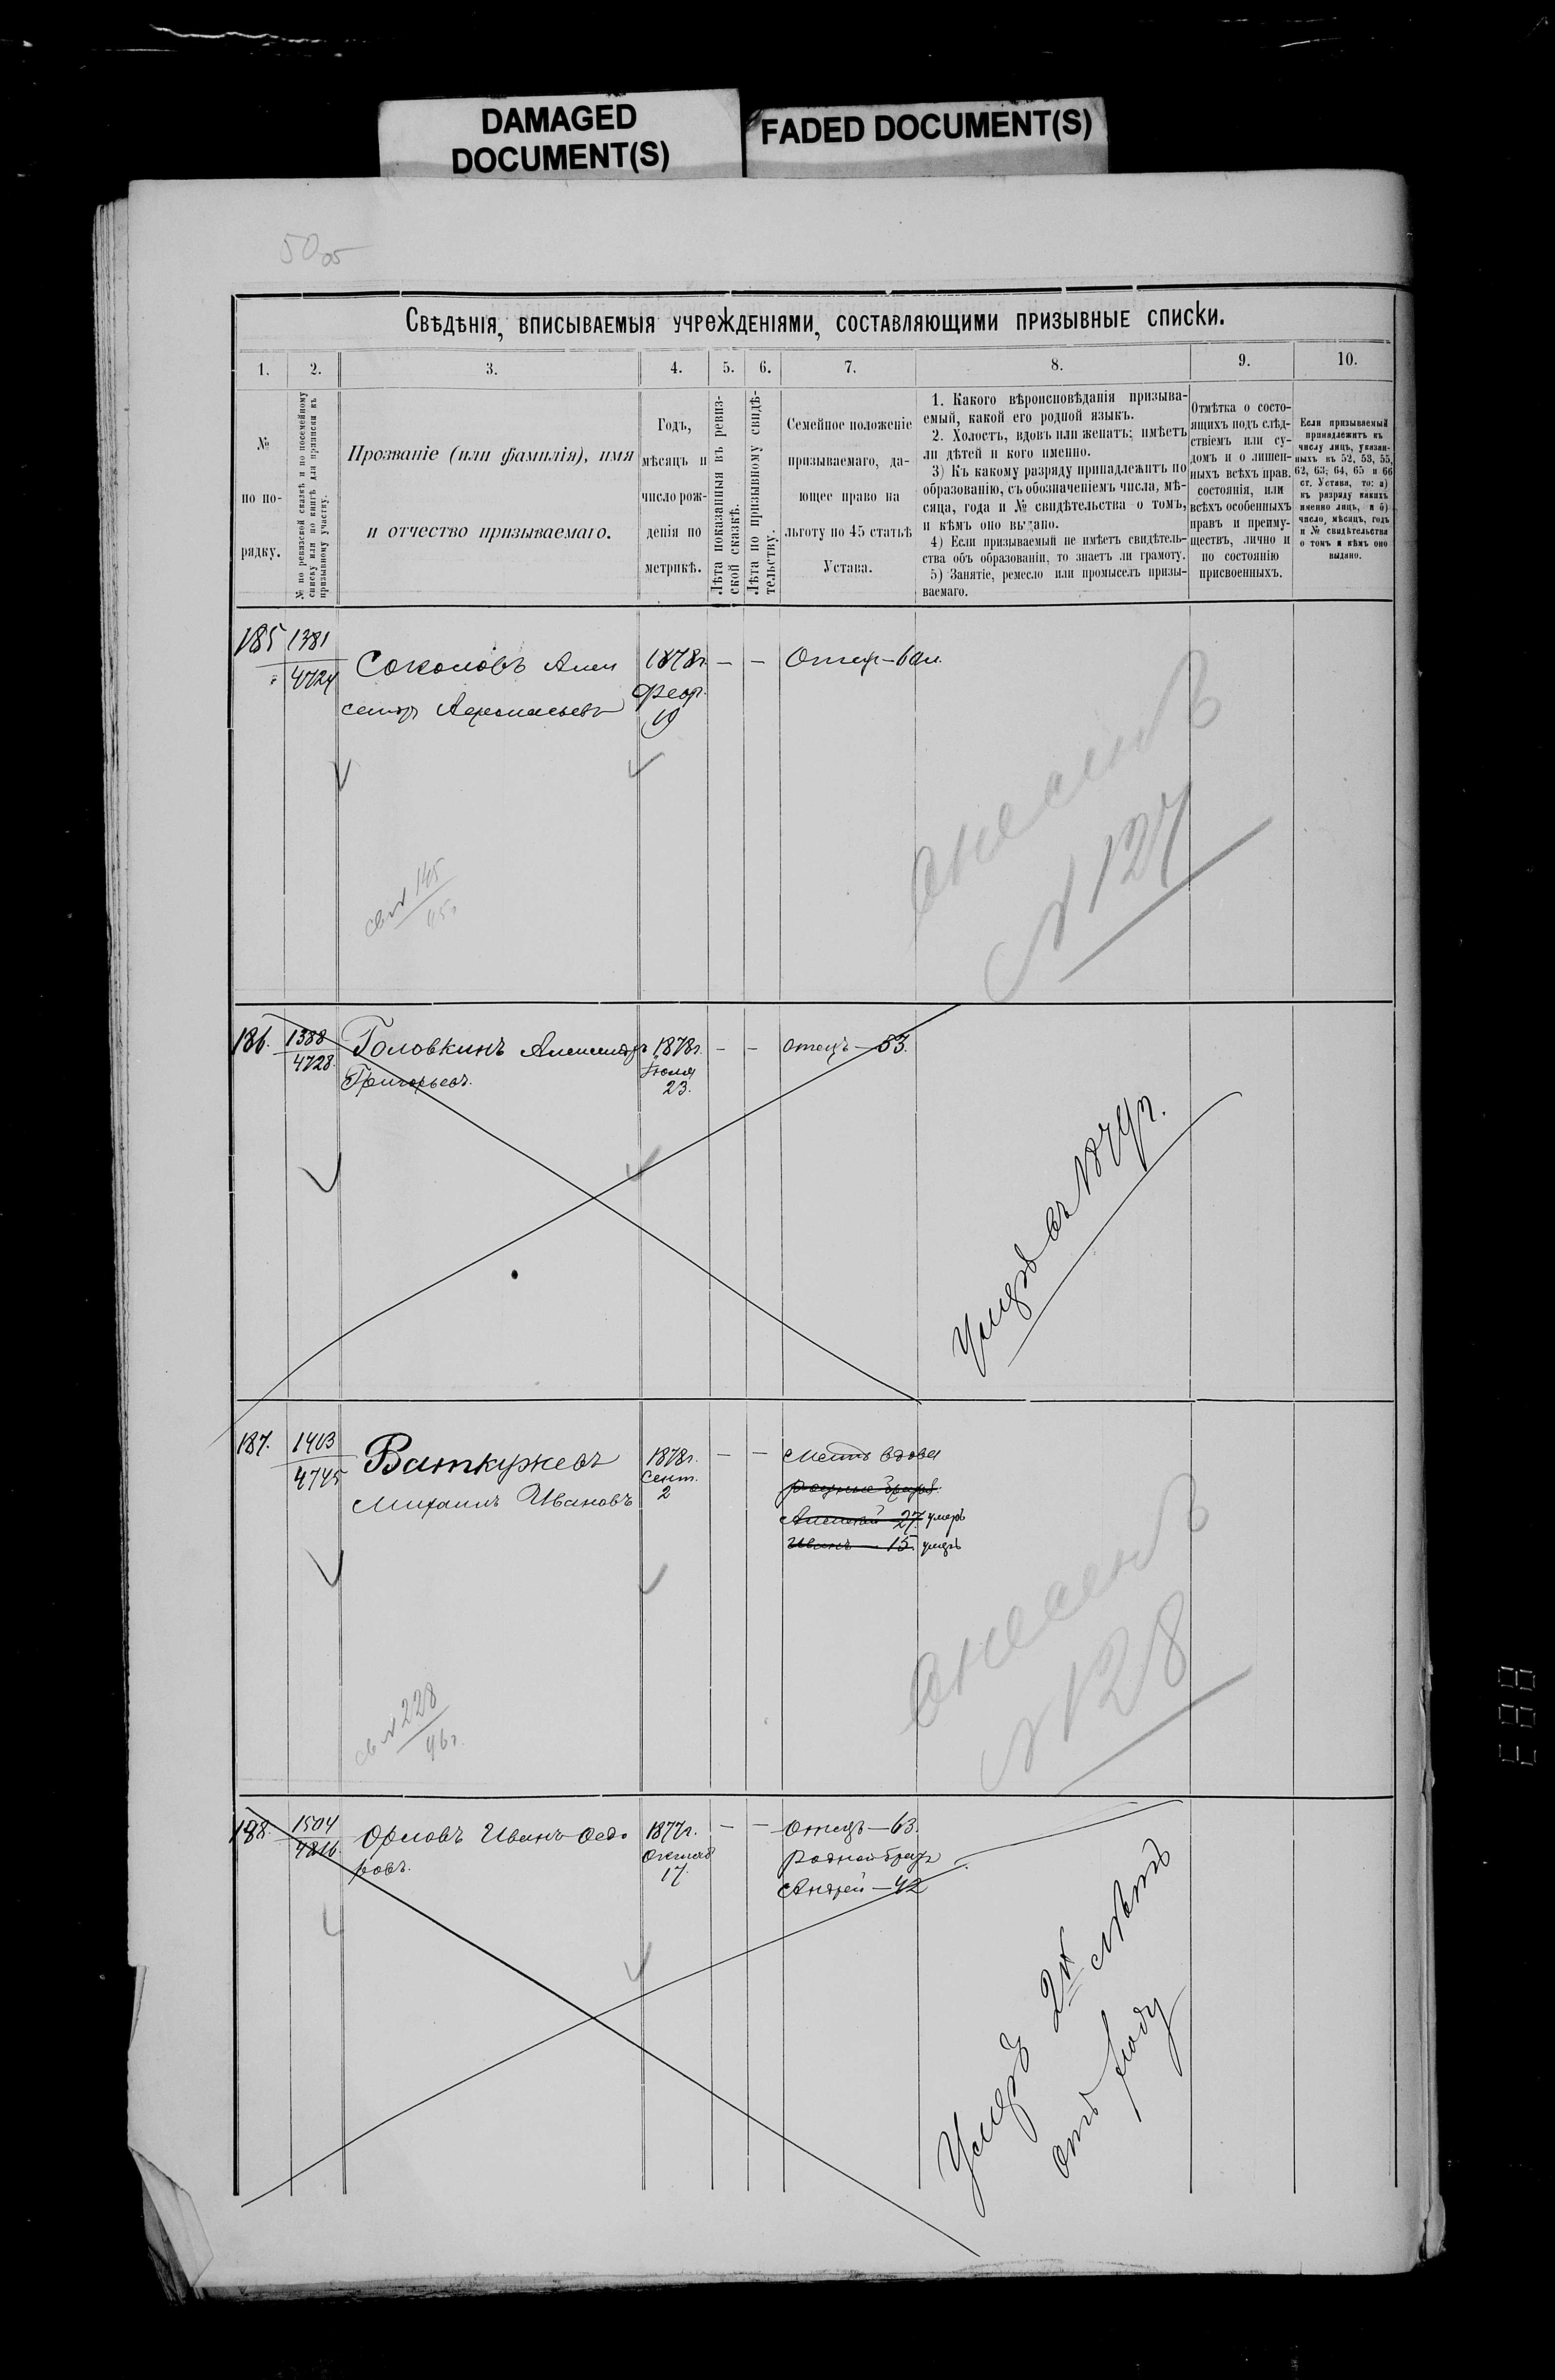 DAMAGED
DOCUMENT(S)
FADED DOCUMENT(S)
Свѣдѣнія, вписываемыя учрежденіями, составляющими призывные списки.
1.
2.
3.
4.
5.
6.
7.
8.
9.
10.
№
по по-
рядку.
№ по ревизской сказкѣ и по посемейному
списку или по книгѣ для приписки къ
призывному участку.
Прозваніе (или фамилія), имя
и отчество призываемаго.
Годъ,
мѣсяцъ и
число рож-
денія по
метрикѣ.
Лѣта показанныя въ ревиз-
ской сказкѣ.
Лѣта по призывному свидѣ-
тельству.
Семейное положеніе
призываемаго, да-
ющее право на
льготу по 45 статьѣ
Устава.
1. Какого вѣроисповѣданія призыва-
емый, какой его родной языкъ.
2. Холостъ, вдовъ или женатъ; имѣетъ
ли дѣтей и кого именно.
3) Къ какому разряду принадлежитъ по
образованію, съ обозначеніемъ числа, мѣ-
сяца, года и № свидѣтельства о томъ,
и кѣмъ оно выдано.
4) Если призываемый не имѣетъ свидѣтель-
ства объ образованіи, то знаетъ ли грамоту.
5) Занятіе, ремесло или промыселъ призы-
ваемаго.
Отмѣтка о состо-
ящихъ подъ слѣд-
ствіемъ или су-
домъ и о лишен-
ныхъ всѣхъ прав.
состоянія, или
всѣхъ особенныхъ
правъ и преиму-
ществъ, лично и
по состоянію
присвоенныхъ.
Если призываемый
принадлежитъ къ
числу лицъ, указан-
ныхъ въ 52, 53, 55,
62, 63, 64, 65 и 66
ст. Устава, то: а)
къ разряду какихъ
именно лицъ, и б)
число, мѣсяцъ, годъ
и № свидѣтельства
о томъ и кѣмъ оно
выдано.
185
1381
4724
Соколовъ Алек
1878г.
— —
Отец — 60л.
Февр.
19
№ 127
145
45г
186.
1388
4728.
Головкинъ Александръ
Григорьевъ.
1878г.
Іюля
23.
— —
отецъ — 53.
Умеръ въ 1879г.
187.
1403
4745
Ваткужевъ
Михаилъ Ивановъ
1878г.
Сент.
2
— —
Мать вдова
родные братья
Алексей 27. умеръ
Иванъ — 15. умеръ
№ 128
св № 228
46г.
188.
1504
4816.
Орловъ Иванъ Ѳедо
ровъ.
1877г.
Октяб
17.
— —
Отецъ — 63.
Родной братъ
Андрей — 42
Умеръ 2х лѣтъ
отъ роду
883